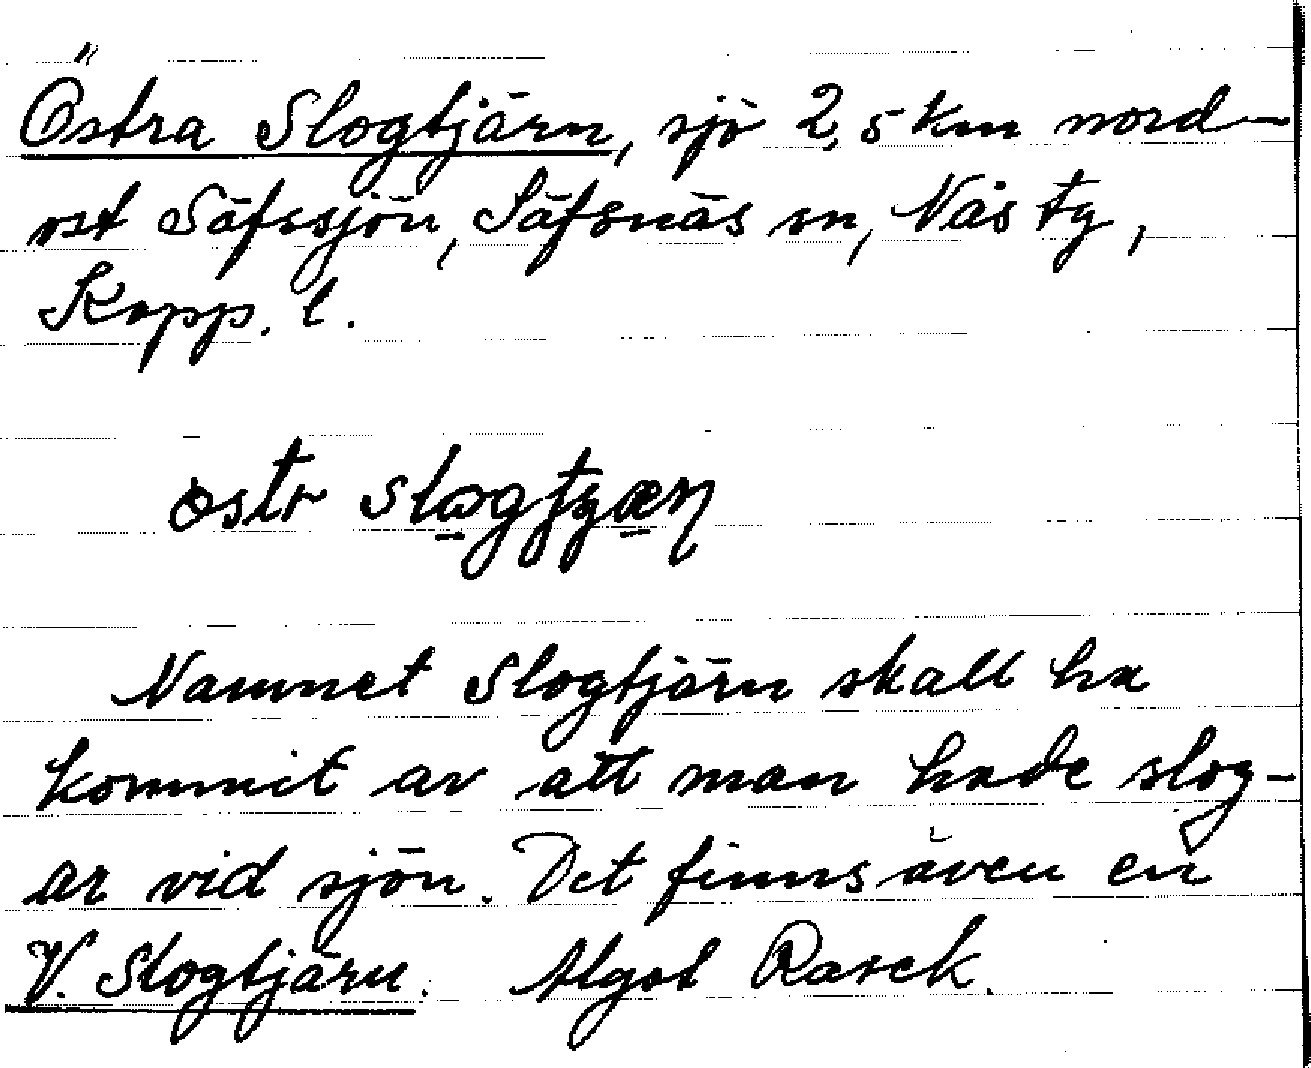 Östra Slogtjärn, sjö 2,5 km nord-
ost Säfssjön, Säfsnäs sn, Nås tg,
Kopp. l.
östr slogtjæɳ
Namnet Slogtjärn skall ha
kommit av att man hade slog-
ar vid sjön. Det finns även en
V. Slogtjärn. Algot Rasck.